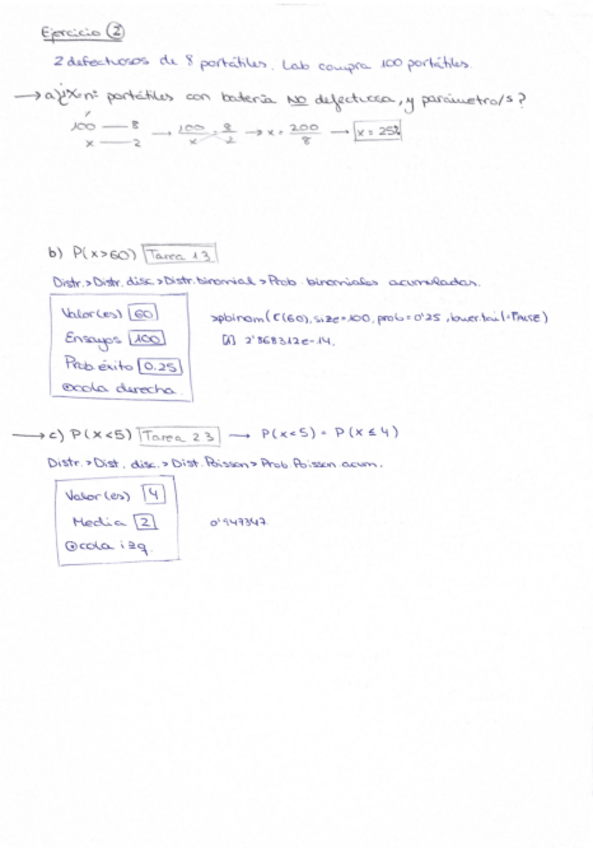 Ejercicio 2
2 defectuosos de 8 portátiles. Lab compra 100 portátiles.
→ a) ¿X: nº portátiles con batería NO defectuosa, y parámetro/s?
100 — 8
x — 2
→ 100/x = 8/2 → x = 200/8 → x = 25%
b) P(x>60) Tarea 13
Distr. > Distr. disc > Distr. binomial > Prob. binomiales acumuladas.
Valor(es) 60
Ensayos 100
Prob. éxito 0.25
cola derecha.
>pbinom(c(60), size=100, prob=0'25, lower.tail=FALSE)
[1] 2'868312e-14.
→ c) P(x<5) Tarea 23 → P(x<5) = P(x≤4)
Distr. > Dist. disc. > Dist. Poisson > Prob. Poisson acum.
Valor(es) 4
Media 2
cola izq.
0'947347